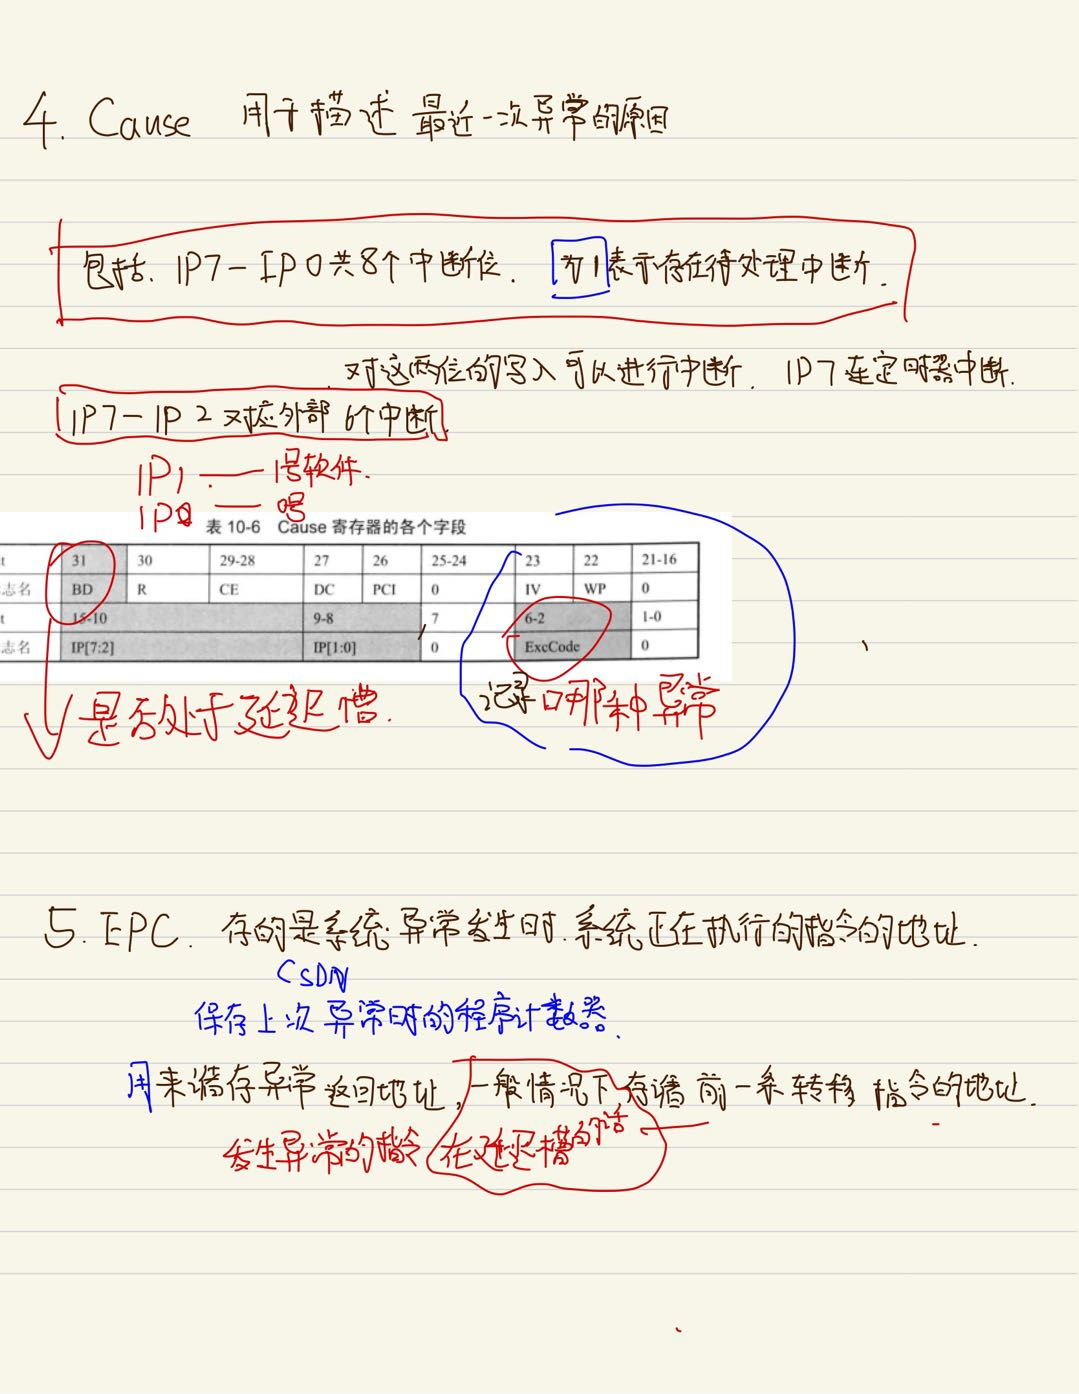 4. Cause 用于描述 最近一次异常的原因
包括. IP7-IP0共8个中断位. 为1表示存在待处理中断.
对这两位的写入可以进行中断. IP7连定时器中断.
IP7-IP2对应外部6个中断
IP1 —— 1号软件.
IP0 —— 0号
表 10-6 Cause 寄存器的各个字段
t 31 30 29-28 27 26 25-24 23 22 21-16
志名 BD R CE DC PCI 0 IV WP 0
t 15-10 9-8 7 6-2 1-0
志名 IP[7:2] IP[1:0] 0 ExcCode 0
是否处于延迟槽. 记录哪种异常
5. EPC. 存的是系统异常发生时.系统正在执行的指令的地址.
CSDN
保存上次异常时的程序计数器.
用来储存异常返回地址,一般情况下存储前一条转移指令的地址.
发生异常的指令在延迟槽的话